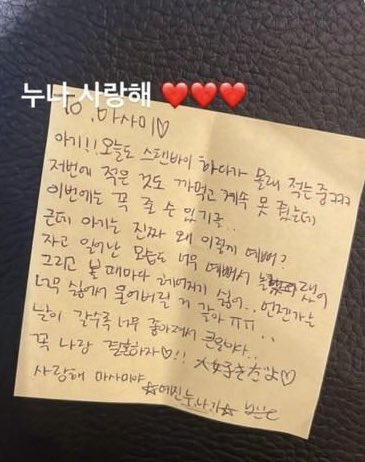 누나 사랑해 ❤️❤️❤️
마사미♡
아기!! 오늘도 스탠바이 하다가 몰래 적는중ㅋㅋㅋ
저번에 적은 것도 까먹고 계속 못 줬는데
이번에는 꼭 줄 수 있기를..
근데 아기는 진짜 왜 이렇게 예뻐?
자고 일어난 모습도 너무 예뻐서 놀랬어
그리고 볼 때마다 헤어지기 싫어.. 언젠가는
너무 싫어서 울어버릴 거 같아 ㅠㅠ..
날이 갈수록 너무 좋아져서 큰일이야..
꼭 나랑 결혼하자♡!! 大好きだよ♡
사랑해 마사미야
☆예진누나가☆